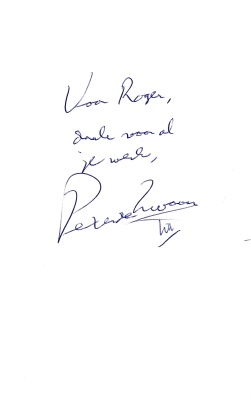 Voor Roger,
dank voor al
je werk,
Peter de Zwaan